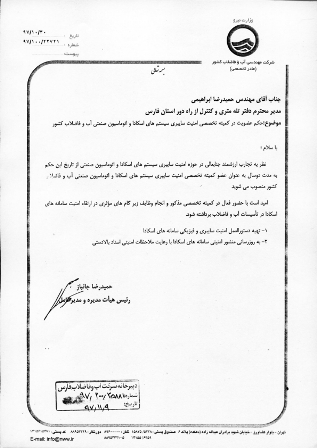 وزارت نیرو
شرکت مهندسی آب و فاضلاب کشور
(مادر تخصصی)
تاریخ : ۹۷/۱۰/۳۰
شماره : ۹۷/۱۰۰/۲۲۷۲۱
پیوست :
بسمه تعالی
جناب آقای مهندس حمیدرضا ابراهیمی
مدیر محترم دفتر تله متری و کنترل از راه دور استان فارس
موضوع:حکم عضویت در کمیته تخصصی امنیت سایبری سیستم های اسکادا و اتوماسیون صنعتی آب و فاضلاب کشور
با سلام ؛
نظر به تجارب ارزشمند جنابعالی در حوزه امنیت سایبری سیستم های اسکادا و اتوماسیون صنعتی از تاریخ این حکم
به مدت دوسال به عنوان عضو کمیته تخصصی امنیت سایبری سیستم های اسکادا و اتوماسیون صنعتی آب و فاضلاب
کشور منصوب می شوید.
امید است با حضور فعال در کمیته تخصصی مذکور و انجام وظایف زیر گام های مؤثری در ارتقاء امنیت سامانه های
اسکادا در تأسیسات آب و فاضلاب برداشته شود.
۱- تهیه دستورالعمل امنیت سایبری و فیزیکی سامانه های اسکادا
۲- به روزرسانی منشور امنیتی سامانه های اسکادا با رعایت ملاحظات امنیتی اسناد بالادستی
حمیدرضا جانباز
رئیس هیأت مدیره و مدیرعامل
دبیرخانه شرکت آب و فاضلاب فارس
شماره: ۹۷/۲۰۰/۲۵۸۸
تاریخ: ۹۷/۱۱/۹
E-mail: info@nww.ir